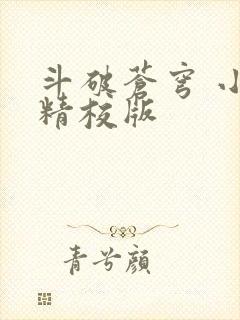 斗破苍穹 小
精校版
青兮颜